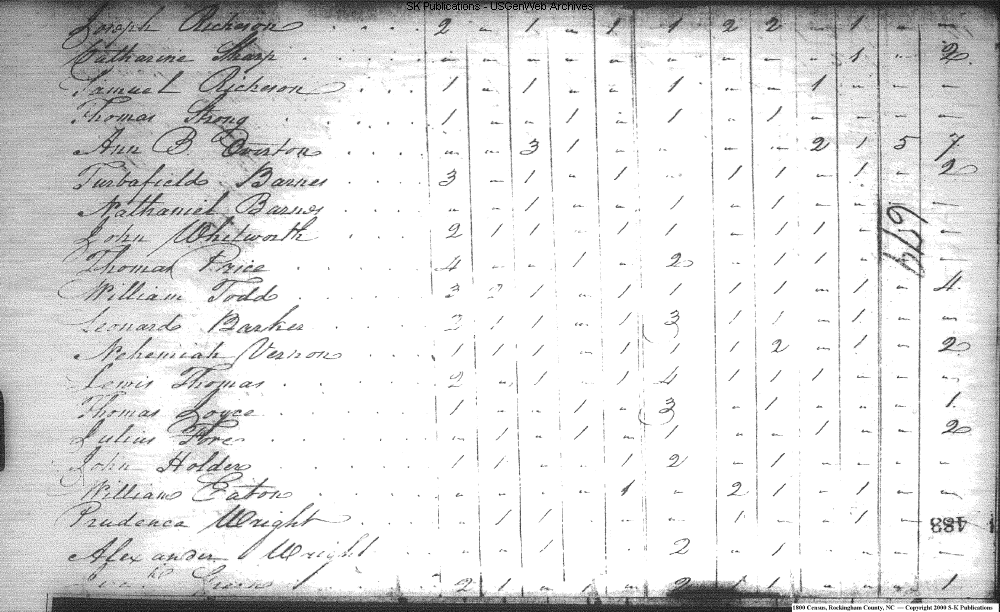 SK Publications - USGenWeb Archives
Joseph Richeson . . . 2 - 1 - 1 1 2 2 - 1 - -
Catharine Sharp . . . - - - - - - - - - 1 - 2
Samuel Richeson . . . 1 - 1 - 1 1 - - 1 - - -
Thomas Strong . . . 1 - - 1 - 1 - 1 - - - -
Ann B. Overton . . . - - 3 1 - - - - 2 1 5 7
Turbafield Barnes . . . 3 - 1 - 1 - 1 1 - 1 - 2
Nathaniel Barnes . . . - - 1 - - 1 - 1 - - - -
John Whitworth . . . 2 1 1 - 1 1 - 1 1 - - -
Thomas Price . . . 4 - - 1 - 2 - 1 1 - - -
William Todd . . . 3 2 1 - 1 1 1 1 - 1 - 4
Leonard Barker . . . 2 1 1 - 1 3 1 1 - 1 - -
Nehemiah Vernon . . . 1 1 1 - 1 1 1 2 - 1 - 2
Lewis Thomas . . . 2 - 1 - 1 4 1 1 1 - - -
Thomas Joyce . . . 1 - - 1 - 3 - 1 - - - 1
Julius . . . - 1 - 1 - 1 - - 1 - - 2
John Holder . . . 1 1 - - 1 2 - 1 - - - -
William Eaton . . . - - - - 1 - 2 1 - 1 - -
Prudence Wright . . . - 1 1 - - - 1 - - 1 - -
Alexander Wright . . . - - 1 - - 2 - 1 - - - -
2 1 - 1 - 2 1 1 - - - 1
679
483
1800 Census, Rockingham County, NC — Copyright 2000 S-K Publications